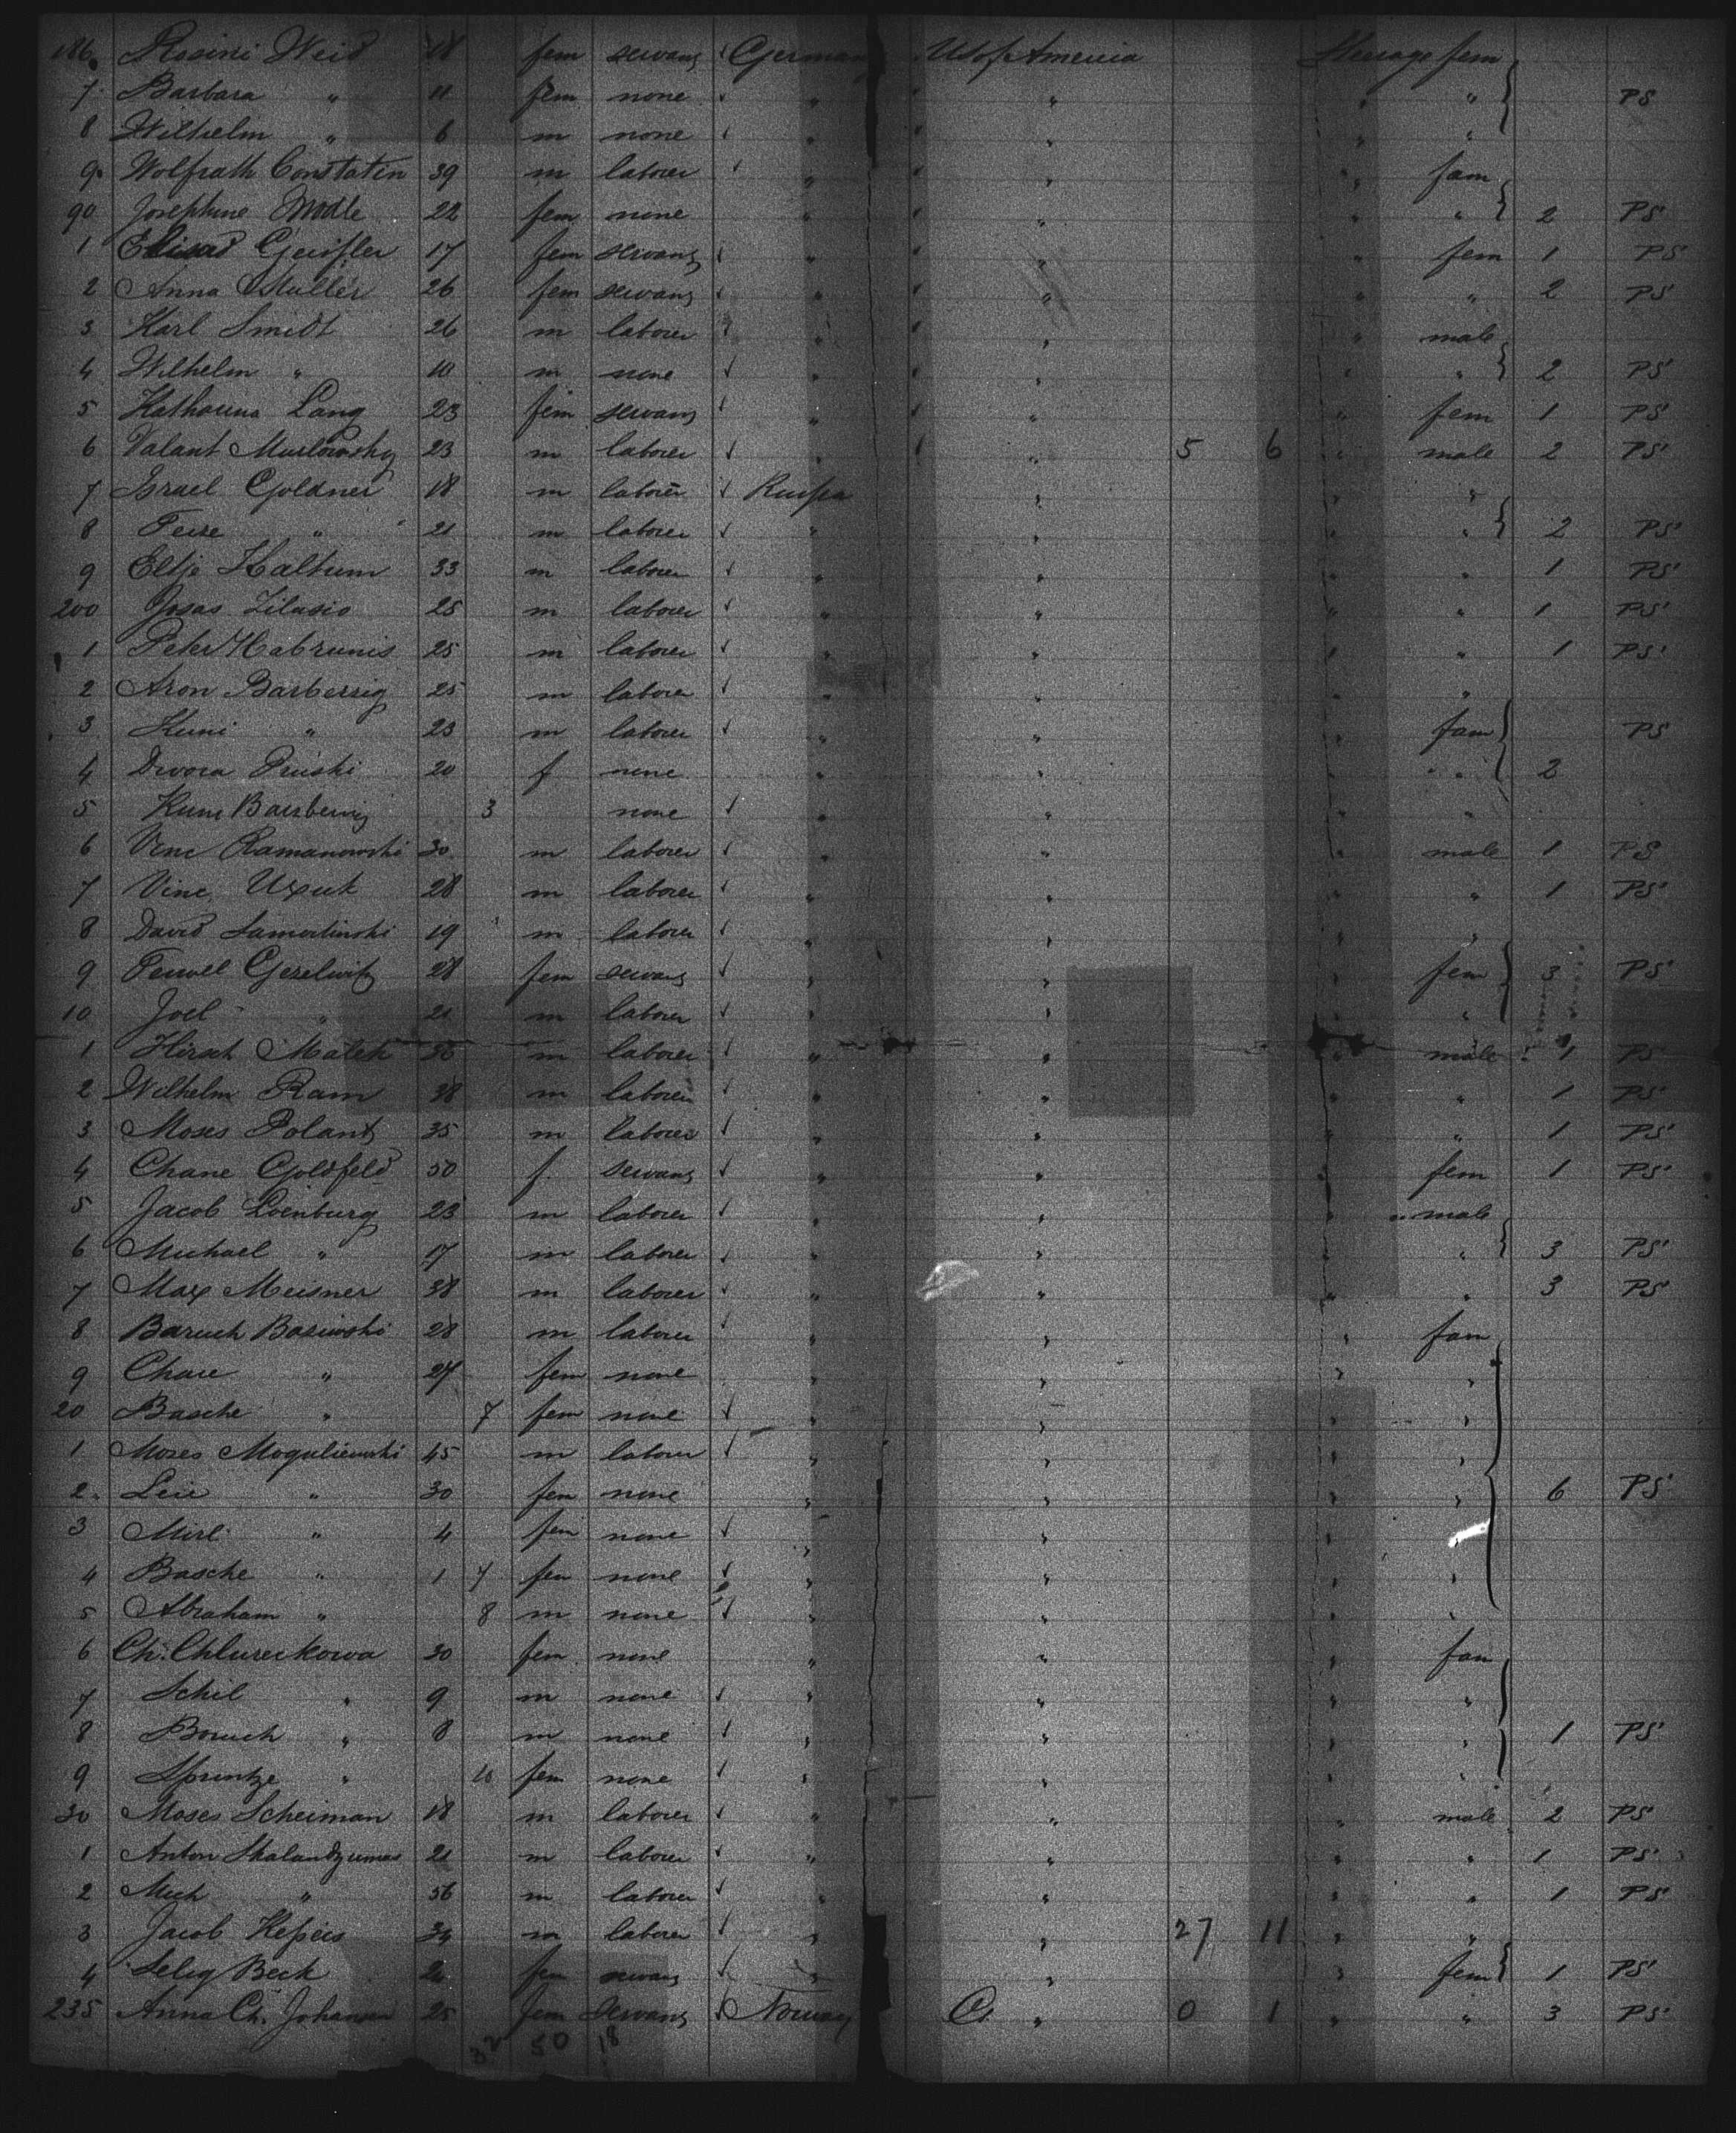 186. Rosini Weid 18 fem servant ✓ German U S of America Steerage fem
7 Barbara " 11 fem none ✓ " " " " PS
8 Wilhelm " 6 m none ✓ " " " "
9. Wolfrath Constatin 39 m laborer ✓ " " " fam
90 Josephine Modle 22 fem none " " " " 2 PS
1 Geissler 17 fem servant ✓ " " " fem 1 PS
2 Anna Muller 26 fem servant ✓ " " " " 2 PS
3 Karl Smidt 26 m laborer " " " male
4 Wilhelm " 10 m none ✓ " " " " 2 PS
5 Katharina Lang 23 fem servant ✓ " " " fem 1 PS
6 Valant 23 m laborer ✓ " " 5 6 " male 2 PS
7 Israel Goldner 18 m laborer ✓ Russia " " "
8 Feise " 21 m laborer ✓ " " " " 2 PS
9 Eltje Kaltum 33 m laborer ✓ " " " " 1 PS
200 Josas Zilasio 25 m laborer ✓ " " " " 1 PS
1 Peter Habrunis 25 m laborer ✓ " " " " 1 PS
2 Aron Barbersig 25 m laborer ✓ " " " "
3 Kuni " 23 m laborer ✓ " " " fam PS
4 Dwora Pruski 20 f none " " " " 2
5 Kuni 3 none ✓ " " " "
6 Vinc Ramanowski 30 m laborer ✓ " " " male 1 PS
7 Vinc. Uxuk 28 m laborer ✓ " " " " 1 PS
8 David 19 m laborer ✓ " " " "
9 Feiwel Geselwitz 28 fem servant ✓ " " " fem 3 PS
10 Joel " 21 m laborer ✓ " " " "
1 Hirsch Malek 36 m laborer ✓ " " " male 1 PS
2 Wilhelm Ram 38 m laborer ✓ " " " " 1 PS
3 Moses Polant 35 m laborer ✓ " " " " 1 PS
4 Chane Goldfeld 50 f. servant ✓ " " " fem 1 PS
5 Jacob Loenburg 23 m laborer ✓ " " " male
6 Michael " 17 m laborer ✓ " " " " 3 PS
7 Max Meisner 38 m laborer ✓ " " " " 3 PS
8 Baruch Basiwski 28 m laborer ✓ " " " fam
9 Chaie " 27 fem none " " " "
20 Basche " 7 fem none ✓ " " " "
1 Moses Moguliewski 45 m laborer ✓ " " " "
2. Leie " 30 fem none " " " " 6 PS
3 Mirl " 4 fem none ✓ " " " "
4 Basche " 1 7 fem none ✓ " " " "
5 Abraham " 8 m none ✓ " " " "
6 Ch. Chlureckowa 30 fem none " " " fam
7 Schil " 9 m none ✓ " " " "
8 Boruch " 8 m none ✓ " " " " 1 PS
9 Sprintze " 10 fem none ✓ " " " "
30 Moses Scheiman 18 m laborer ✓ " " " male 2 PS
1 Anton 21 m laborer ✓ " " " " 1 PS
2 Mich " 56 m laborer ✓ " " " " 1 PS
3 Jacob Kepeis 34 m laborer ✓ " " 27 11 " "
4 Selig Beck fem servant ✓ " " " fem 1 PS
235 Anna Ch. Johansen 25 fem servant ✓ Norway " 0 1 " " 3 PS
32 50 18